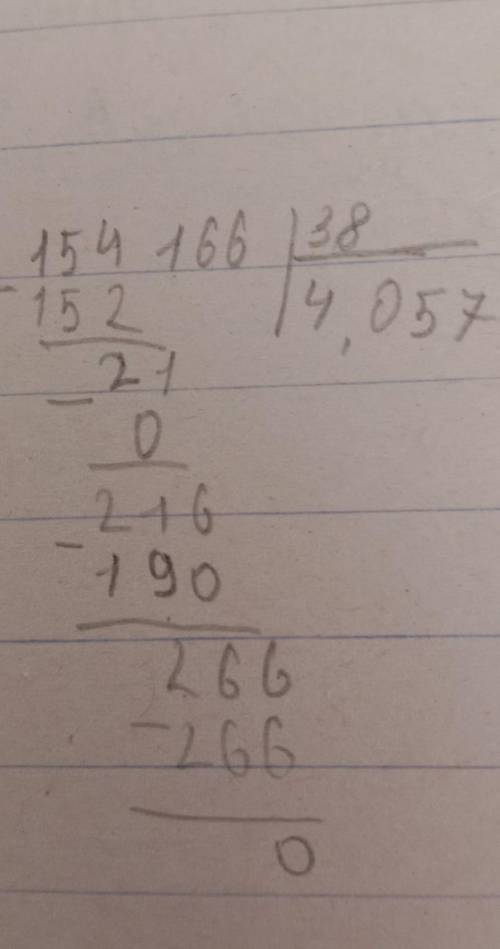 154 166 38
-152 4,057
-21
0
216
-190
266
-266
0